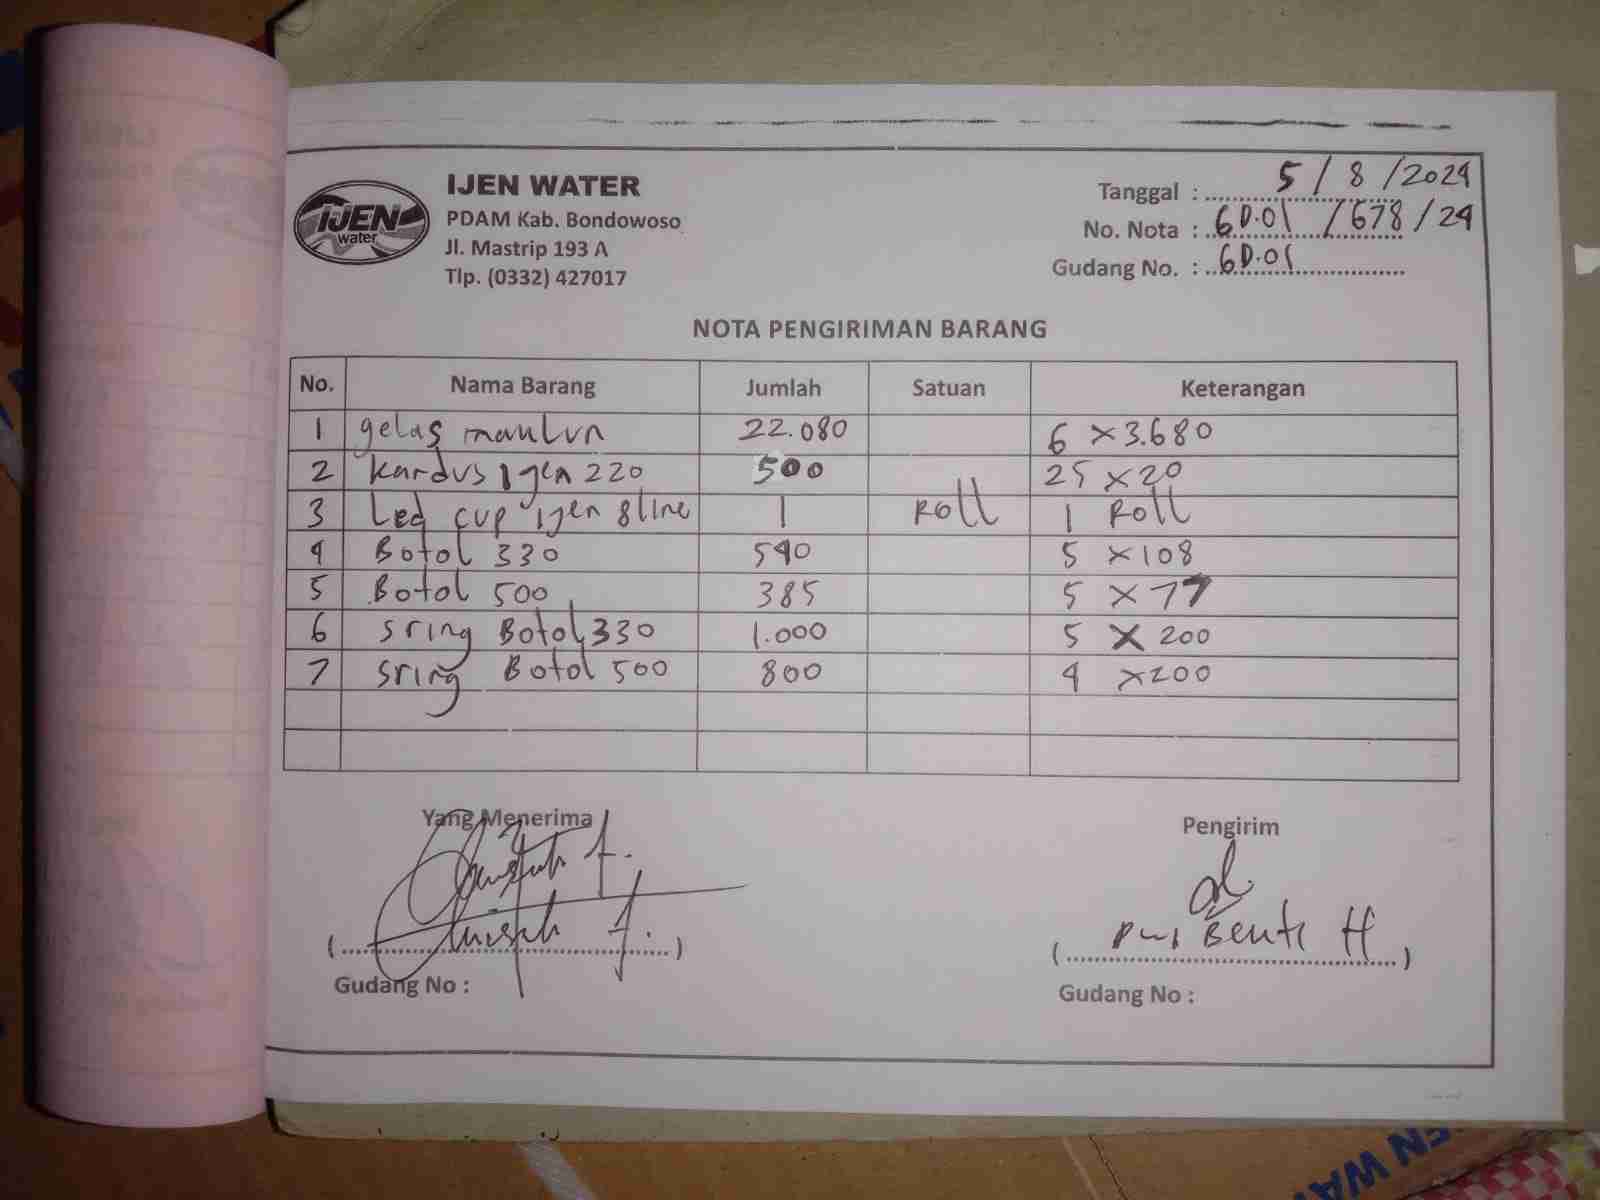 IJEN
water
IJEN WATER
PDAM Kab. Bondowoso
Jl. Mastrip 193 A
Tlp. (0332) 427017
Tanggal : 5 / 8 / 2024
No. Nota : GD.01 / 678 / 24
Gudang No. : GD.01
NOTA PENGIRIMAN BARANG
No. Nama Barang Jumlah Satuan Keterangan
1 gelas 22.080 6 x 3.680
2 Kardus Ijen 220 500 25 x 20
3 Led cup ijen 8 line 1 Roll 1 Roll
4 Botol 330 540 5 x 108
5 Botol 500 385 5 x 77
6 sring Botol 330 1.000 5 x 200
7 sring Botol 500 800 4 x 200
Yang Menerima
Pengirim
H
Gudang No :
Gudang No :